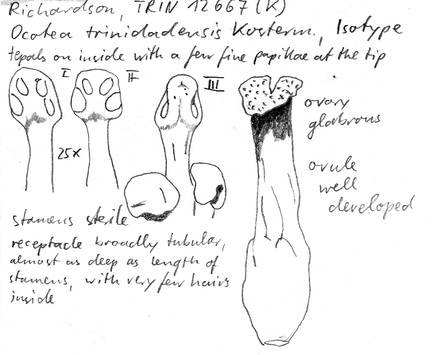 Richardson, TRIN 12667 (K)
Ocotea trinidadensis Kosterm., Isotype
tepals on inside with a few fine papillae at the tip
I
II
III
25x
ovary
glabrous
ovule
well
developed
stamens sterile
receptacle broadly tubular,
almost as deep as length of
stamens, with very few hairs
inside